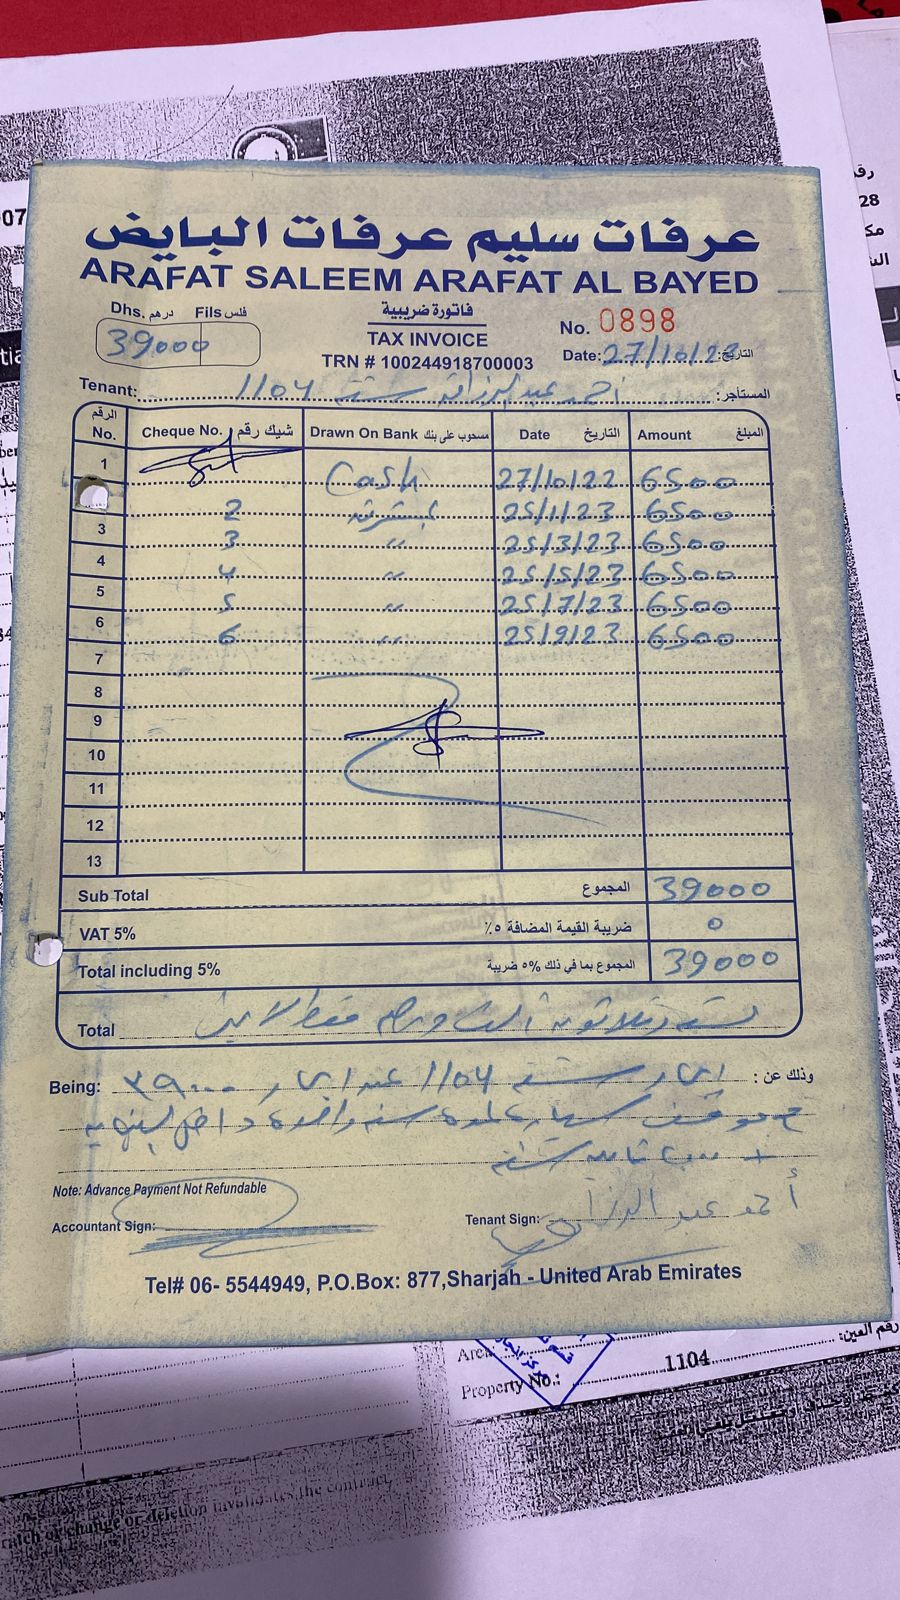 عرفات سليم عرفات البايض
ARAFAT SALEEM ARAFAT AL BAYED
Dhs. درهم Fils فلس
39000
فاتورة ضريبية
TAX INVOICE
TRN # 100244918700003
No. 0898
Date: 27/10/22 التاريخ:
Tenant: أحمد عبد الرزاق شقة 1104 المستأجر:
الرقم No. Cheque No. شيك رقم Drawn On Bank مسحوب على بنك Date التاريخ Amount المبلغ
1 Cash 27/10/22 6500
2 25/1/23 6500
3 3 " 25/3/23 6500
4 4 " 25/5/23 6500
5 5 " 25/7/23 6500
6 6 " 25/9/23 6500
7
8
9
10
11
12
13
Sub Total المجموع 39000
VAT 5% ضريبة القيمة المضافة ٥٪ 0
Total including 5% المجموع بما في ذلك ٥% ضريبة 39000
Total تسعة وثلاثون ألف درهم فقط لا غير
Being: ايجار شقة 1104 عقد ايجار ٣٩٠٠٠ وذلك عن:
سيارة لمدة سنة واحدة داخل
Note: Advance Payment Not Refundable
Accountant Sign:
Tenant Sign: أحمد عبد الرزاق
Tel# 06- 5544949, P.O.Box: 877,Sharjah - United Arab Emirates
Area:
Property No.: 1104 رقم العين:
change or deletion invalidates the contract